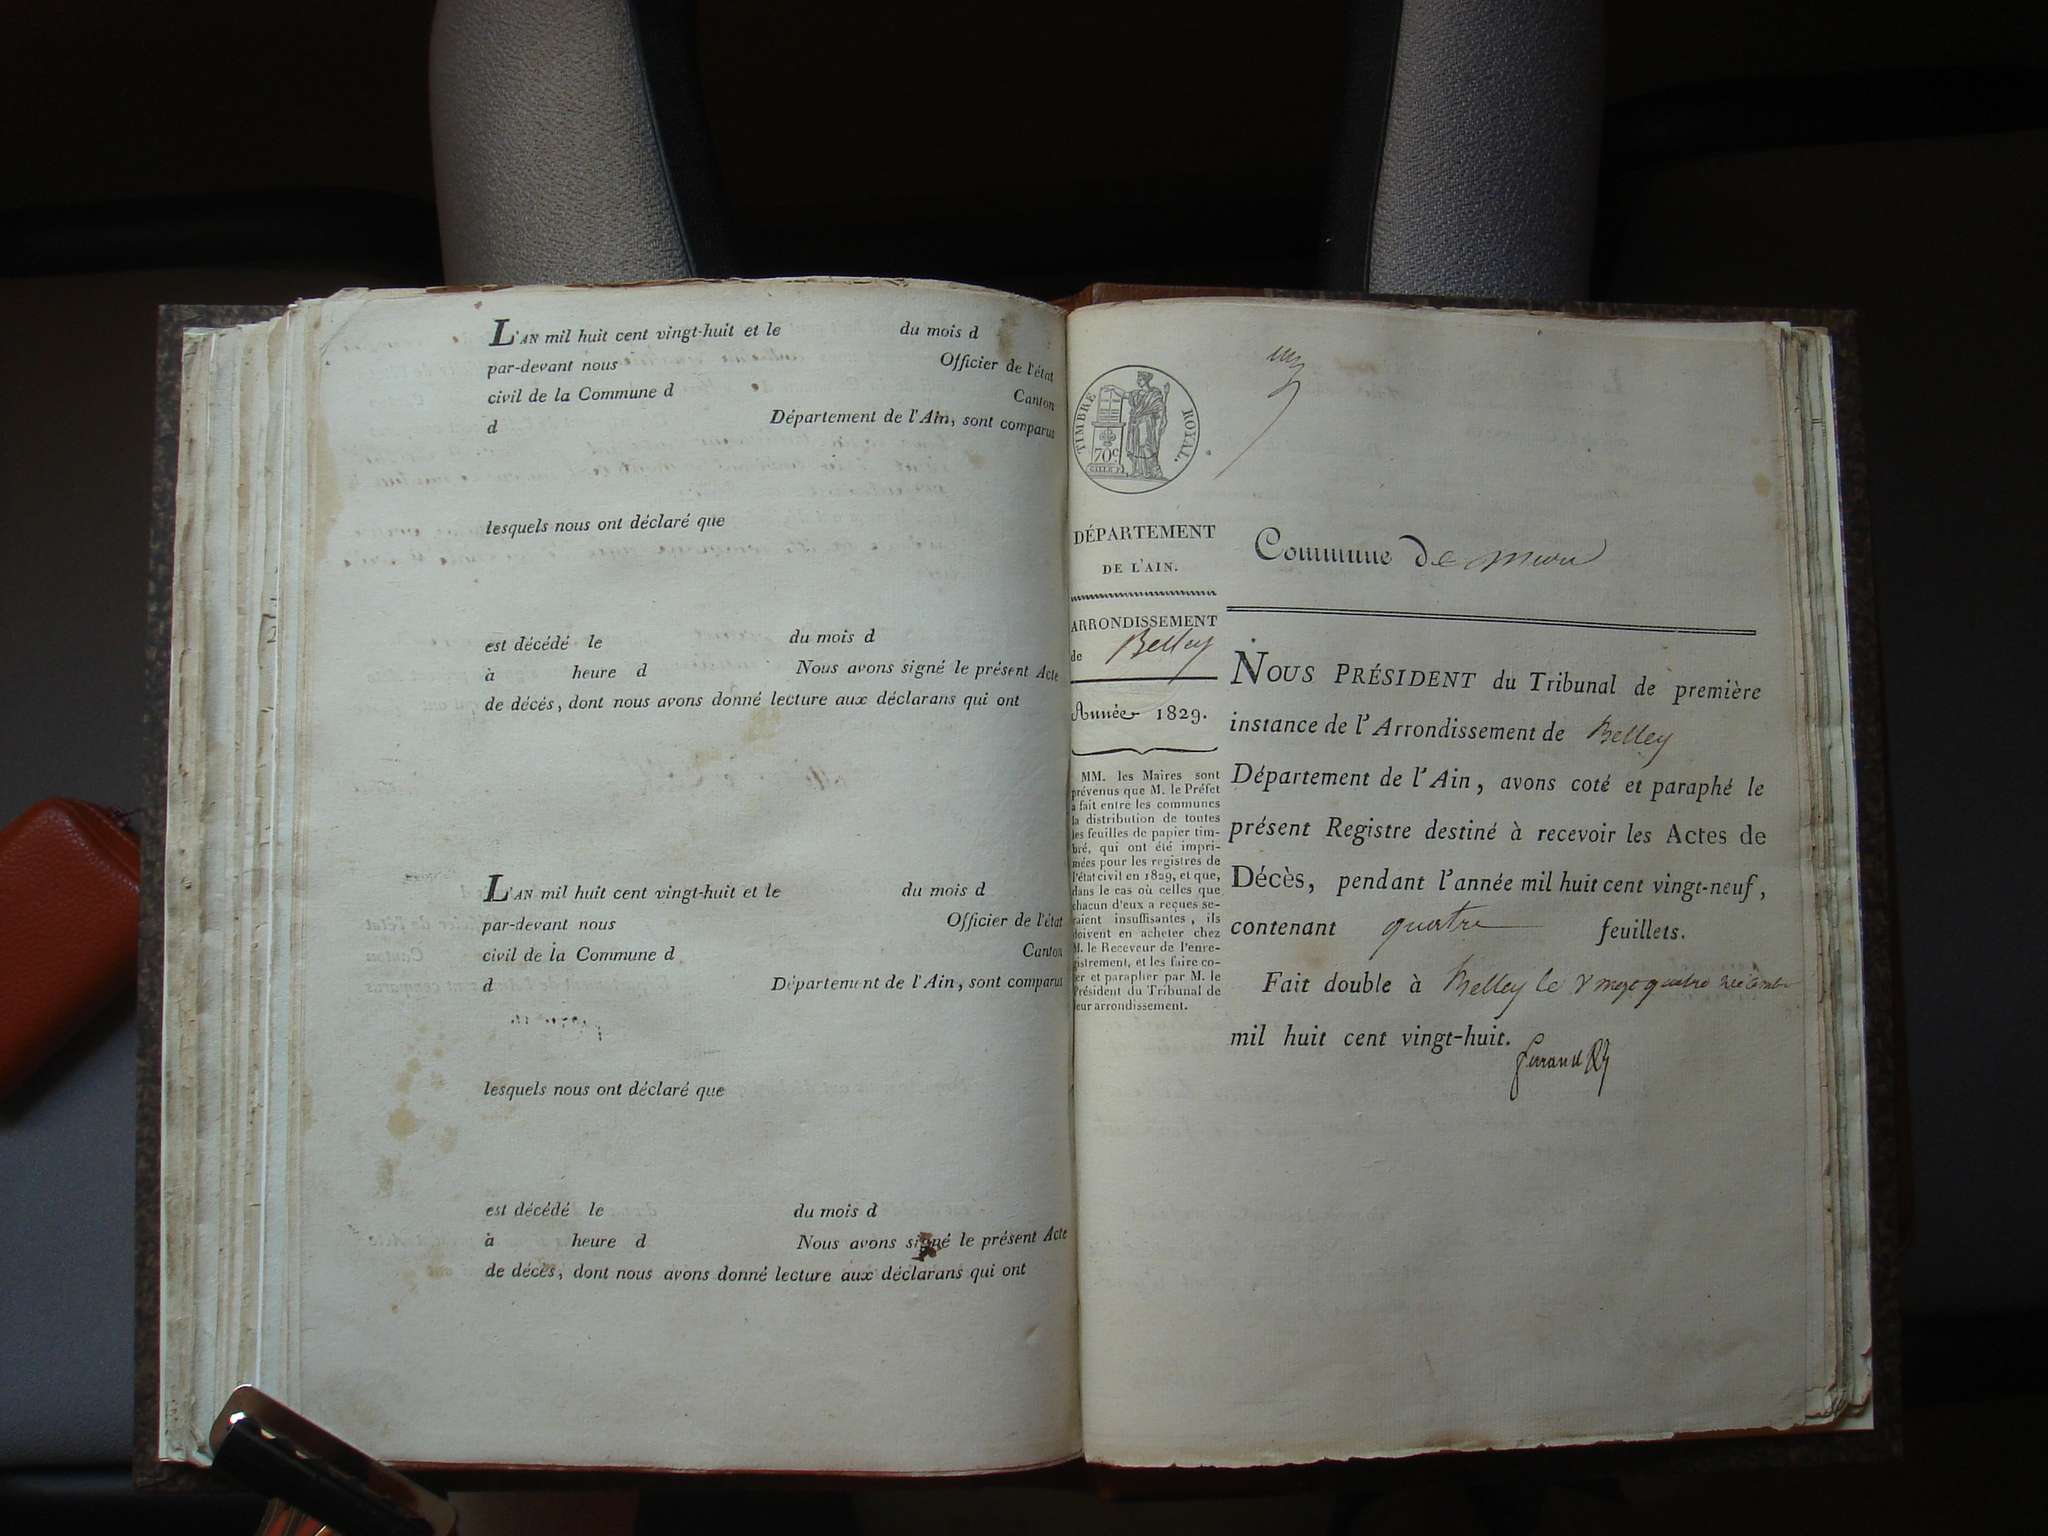 L'AN mil huit cent vingt-huit et le du mois d
par-devant nous Officier de l'état
civil de la Commune d Canton
d Département de l'Ain, sont comparus
lesquels nous ont déclaré que
est décédé le du mois d
à heure d Nous avons signé le présent Acte
de décés, dont nous avons donné lecture aux déclarans qui ont
L'AN mil huit cent vingt-huit et le du mois d
par-devant nous Officier de l'état
civil de la Commune d Canton
d Département de l'Ain, sont comparus
lesquels nous ont déclaré que
est décédé le du mois d
à heure d Nous avons signé le présent Acte
de décès, dont nous avons donné lecture aux déclarans qui ont
TIMBRE ROYAL.
70c
DÉPARTEMENT
DE L'AIN.
ARRONDISSEMENT
de Belley
Année 1829.
MM. les Maires sont
prévenus que M. le Préfet
a fait entre les communes
la distribution de toutes
les feuilles de papier tim-
bré, qui ont été impri-
mées pour les registres de
l'état civil en 1829, et que,
dans le cas où celles que
chacun d'eux a reçues se-
raient insuffisantes, ils
doivent en acheter chez
M. le Receveur de l'enre-
gistrement, et les faire co-
ter et parapher par M. le
Président du Tribunal de
leur arrondissement.
Commune De
NOUS PRÉSIDENT du Tribunal de première
instance de l'Arrondissement de Belley
Département de l'Ain, avons coté et paraphé le
présent Registre destiné à recevoir les Actes de
Décès, pendant l'année mil huit cent vingt-neuf,
contenant quatre feuillets.
Fait double à Belley le vingt quatre décembre
mil huit cent vingt-huit.